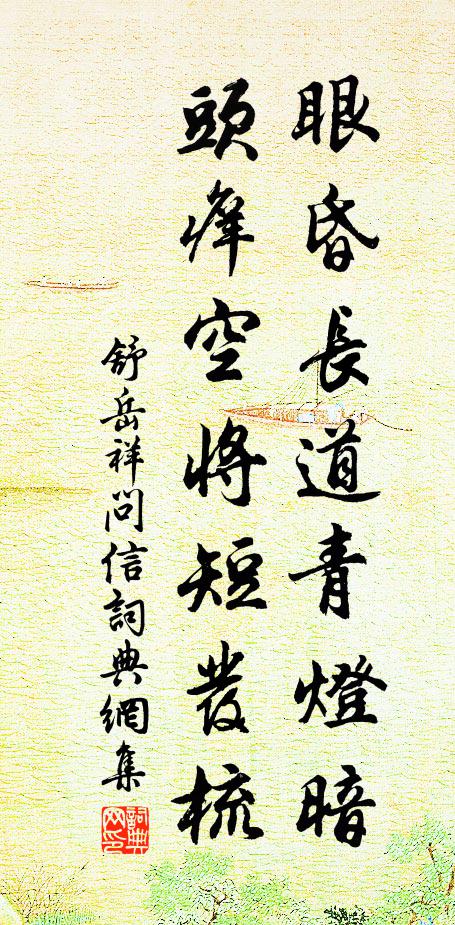 眼昏長道青燈暗
頭癢空將短發梳
舒岳祥問信詞典網集
詞典网印